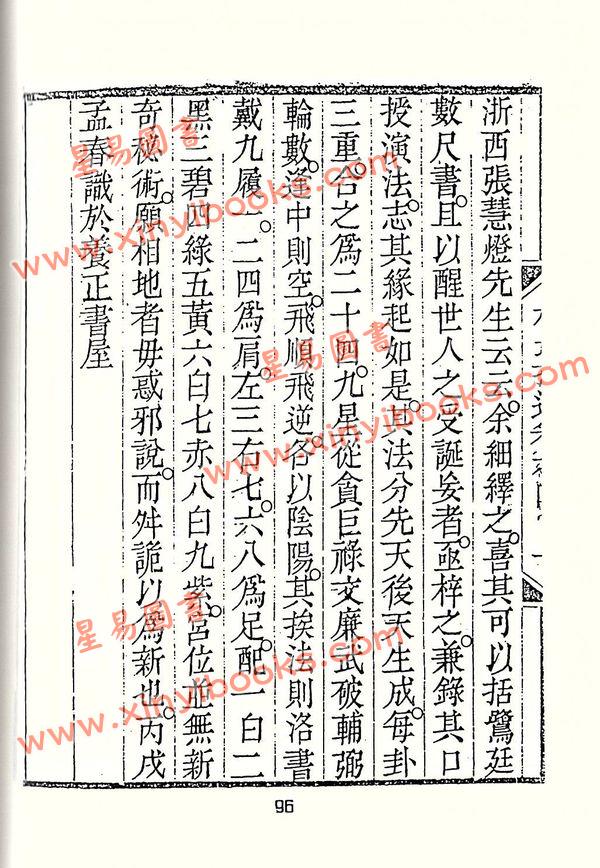 浙西張慧燈先生云云。余細繹之。喜其可以括鷺廷
數尺書。且以醒世人之受誕妄者。亟梓之。兼錄其口
授演法。志其緣起如是。其法分先天後天生成。每卦
三重。合之爲二十四。九星從貪巨祿文廉武破輔弼
輪數。逢中則空。飛順飛逆。各以陰陽。其挨法則洛書
戴九履一。二四爲肩。左三右七。六八爲足。配一白二
黑三碧四綠五黃六白七赤八白九紫。宮位也無新
奇秘術。願相地者毋惑邪說。而舛詭以爲新也。丙戌
孟春識於養正書屋
96
星易圖書
www.xinyibooks.com
星易圖書
www.xinyibooks.com
星易圖書
www.xinyibooks.com